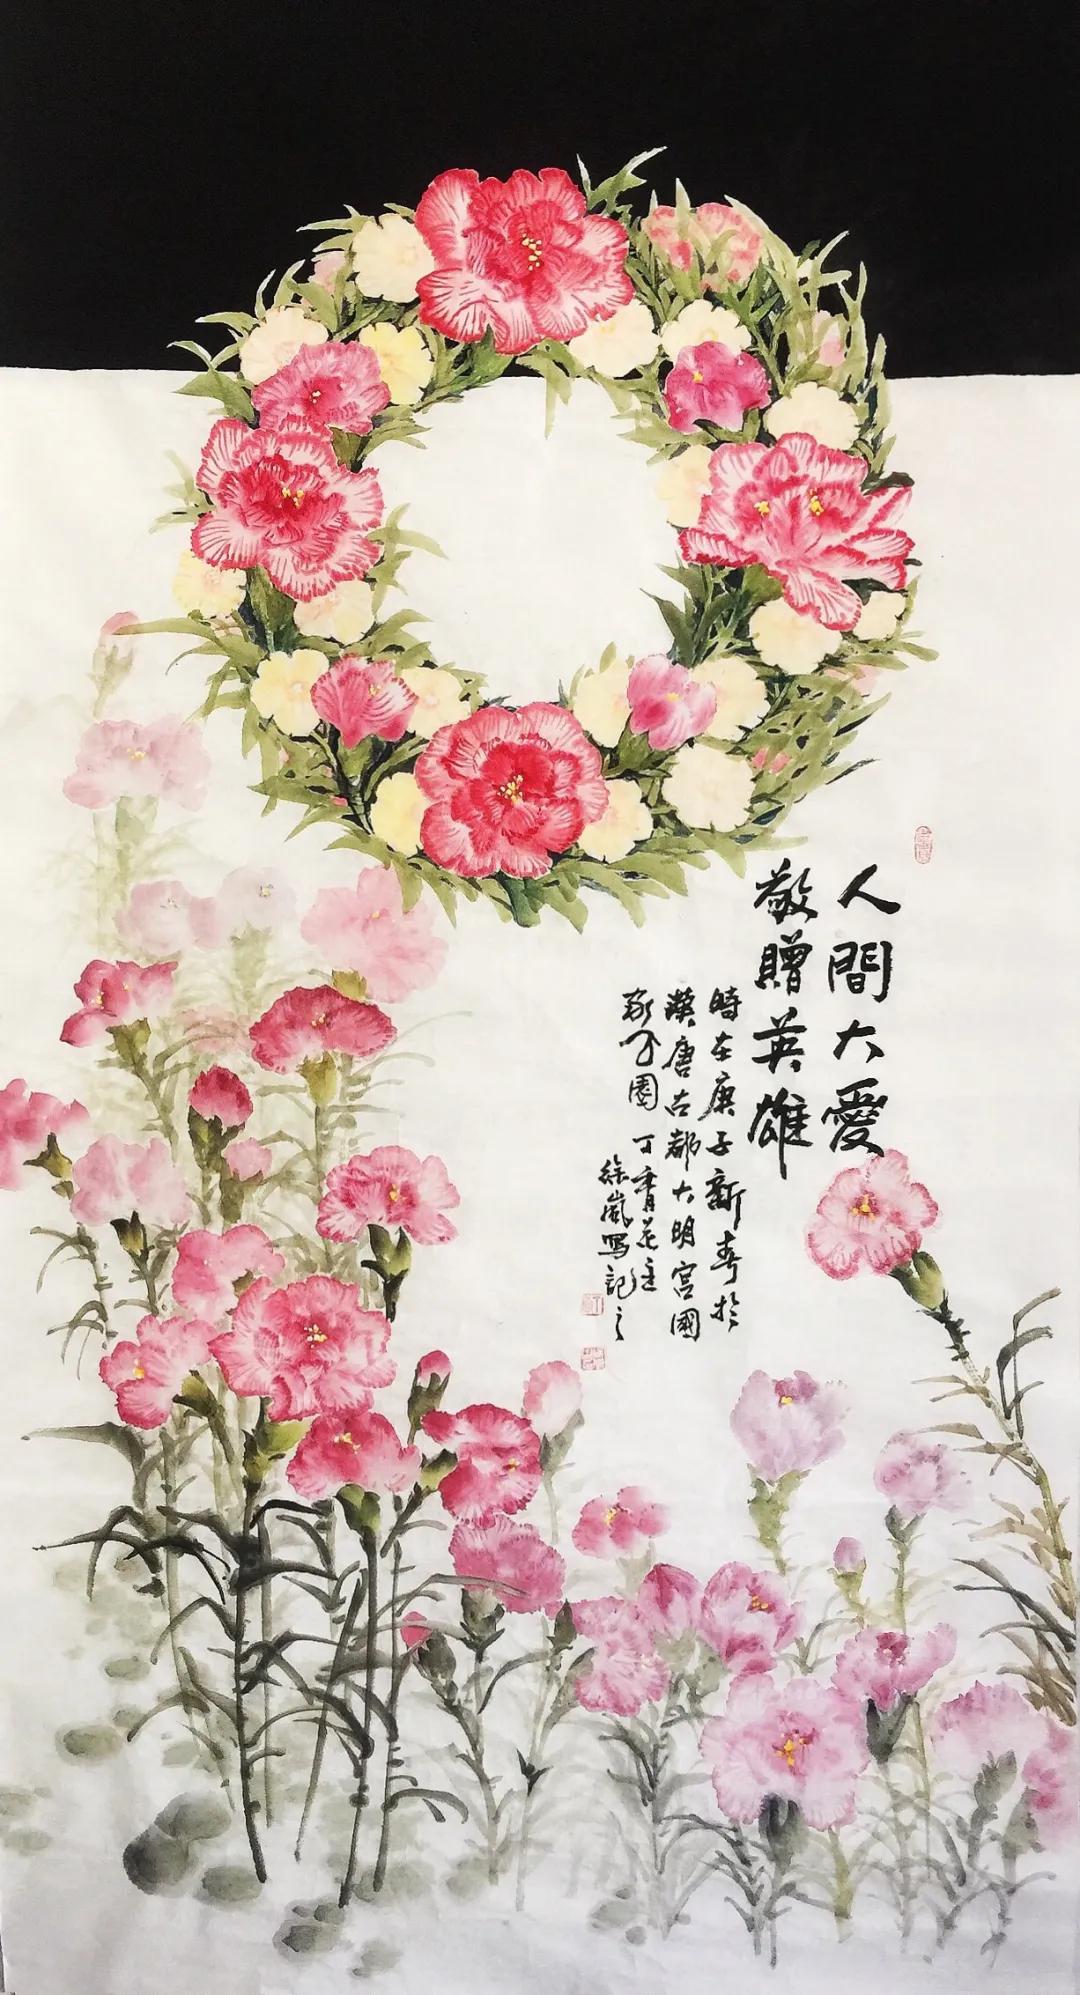 人間大愛
敬贈英雄
時在庚子新春於
漢唐古都大明宮國
家公園 丁香
徐嵐寫記之